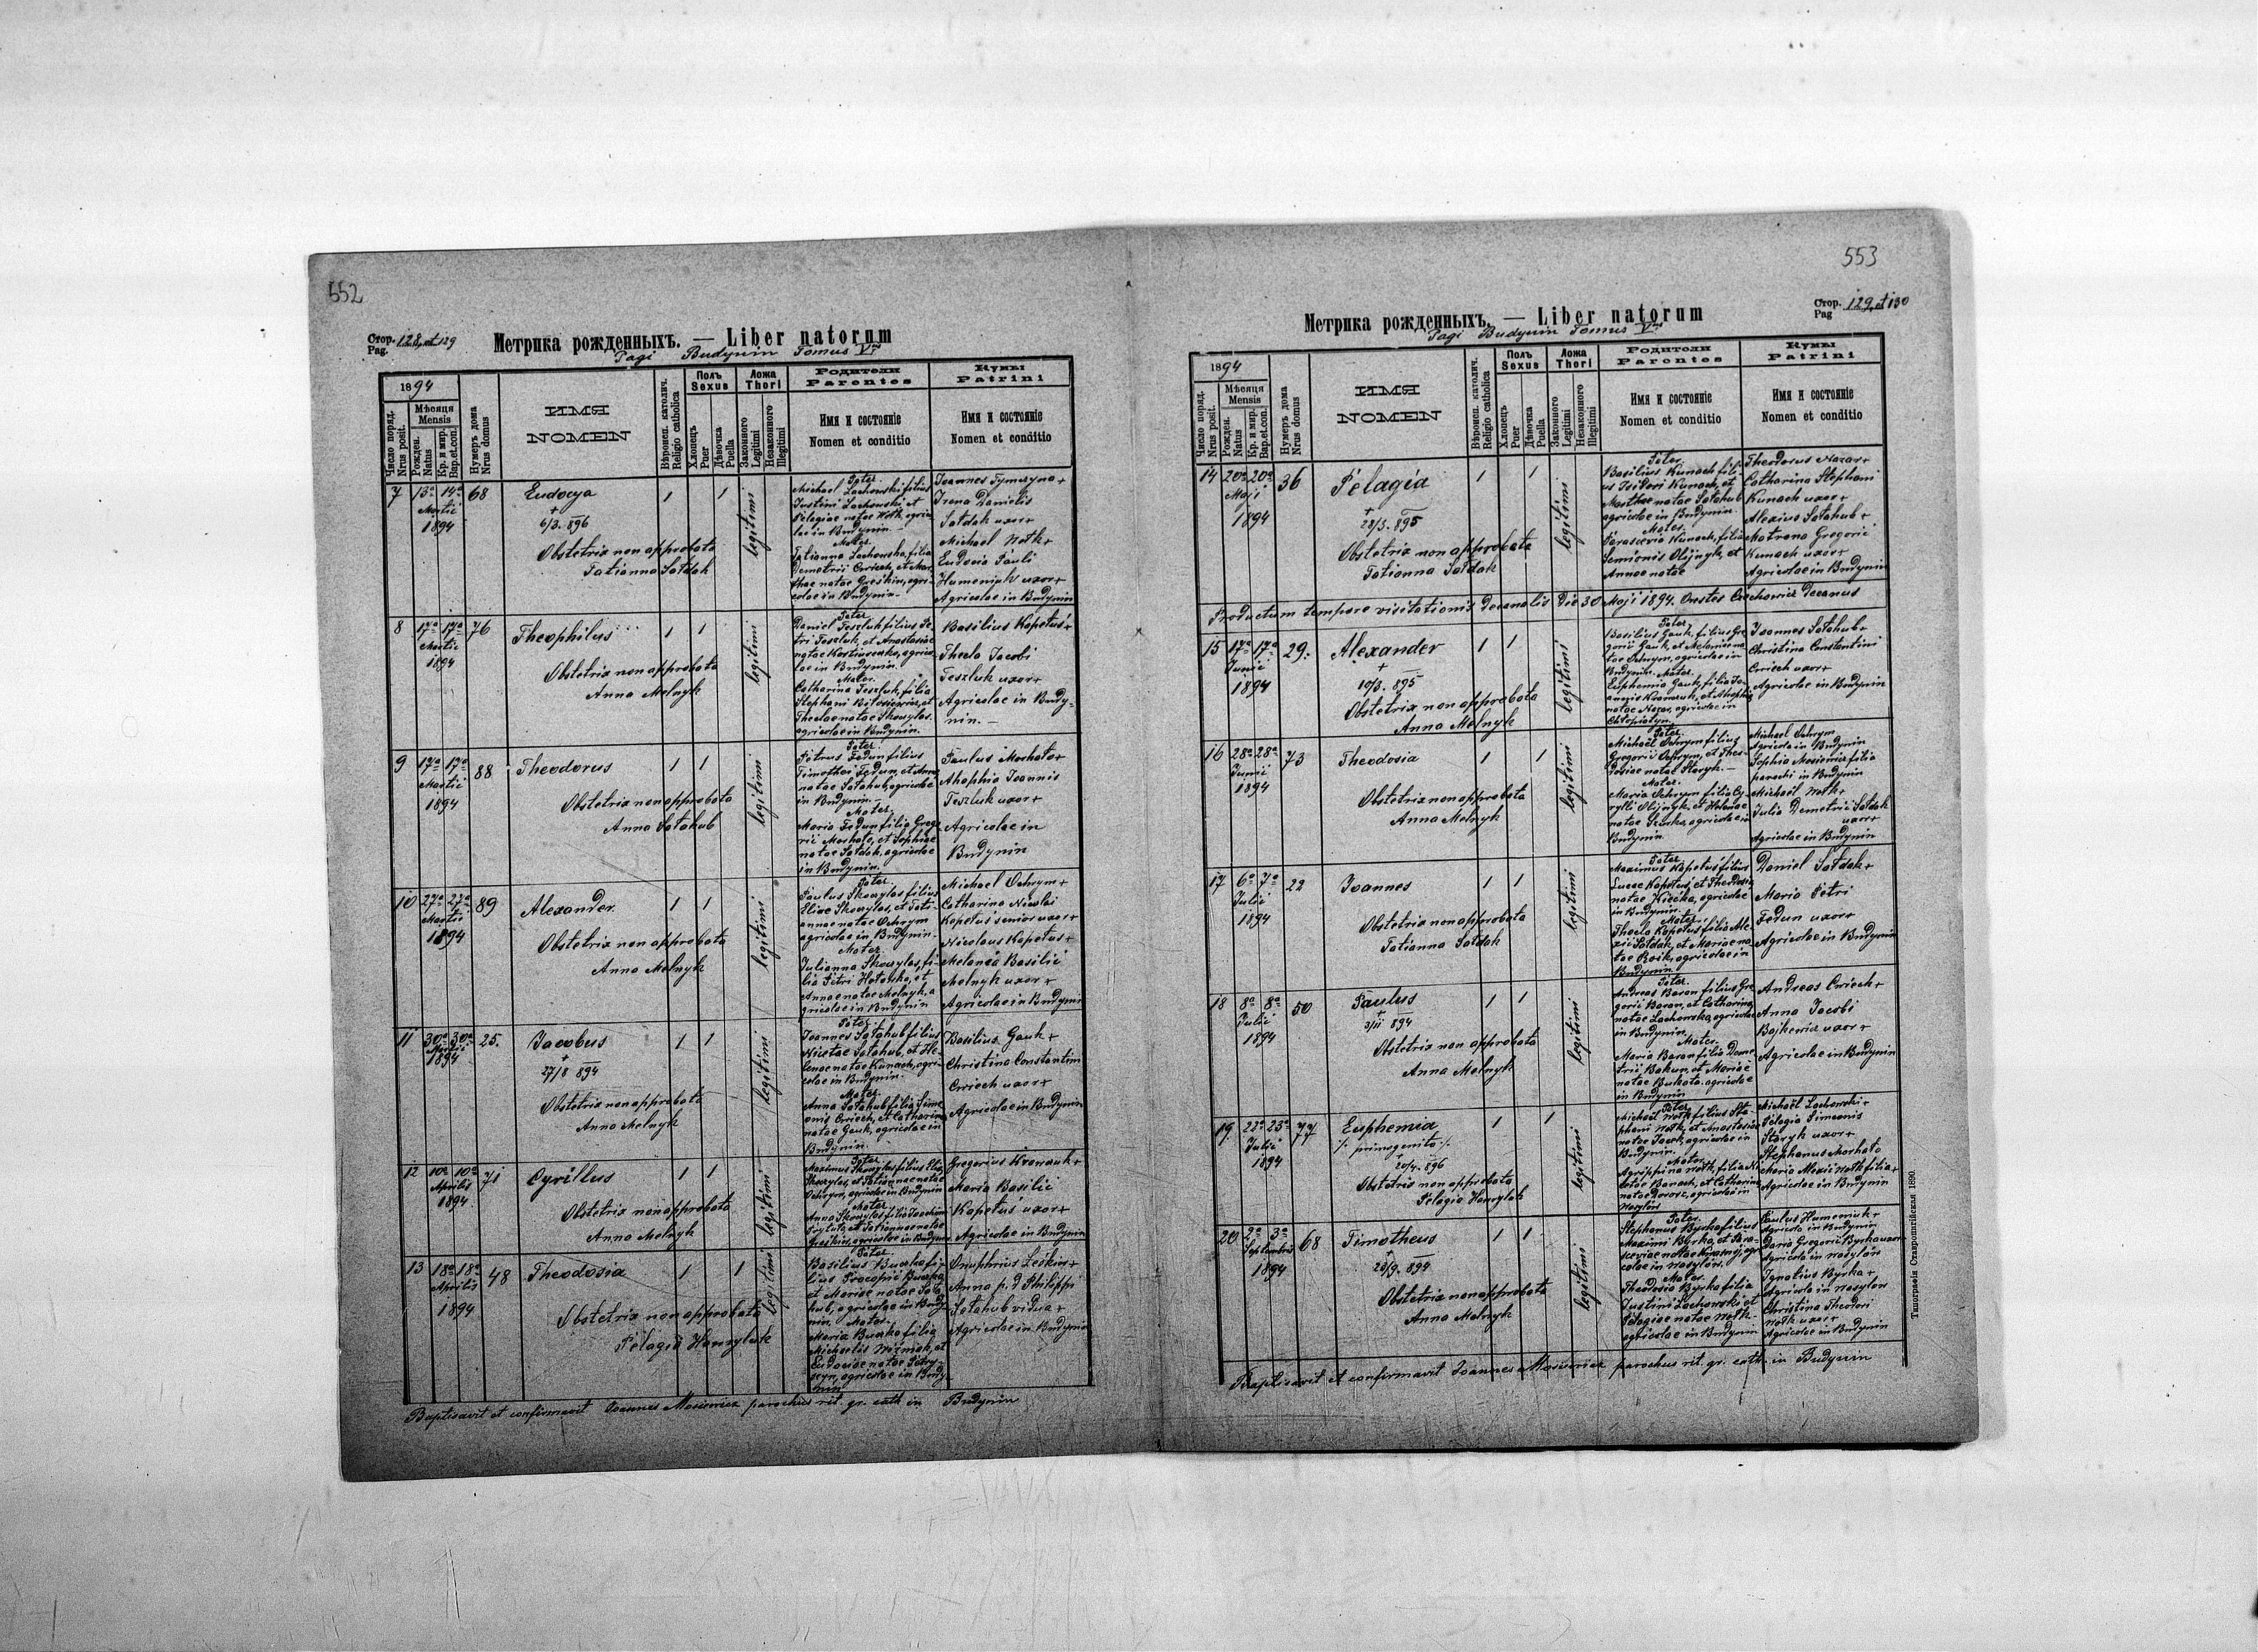 552
Стор. 128, et 129
Pag.
Метрика рожденныхъ. — Liber natorum
Pagi Budynin Tomus V
1894
Число поряд.
Nrus posit.
Мѣсяця
Mensis
Рожден.
Natus
Кр. и мир.
Bap.et.con.
Нумеръ дома
Nrus domus
ИМЯ
NOMEN
Вѣроисп. католич.
Religio catholica
Полъ
Sexus
Хлопецъ
Puer
Дѣвочка
Puella
Ложа
Thori
Законного
Legitimi
Незаконного
Illegitimi
Родители
Parentes
Имя и состоянiе
Nomen et conditio
Кумы
Patrini
Имя и состоянiе
Nomen et conditio
7 13a 14a 68
Martii
1894
Eudocya
+
6/3. 896
Obstetrix non approbata
Tatianna Sołdak
1 1
legitimi
Pater.
Michael Lachowski filius
Justini Lachowski et
Pelagiae natae Wolk, agrico
lae in Budynin
Mater.
Tatianna Lachowska, filia
Demetrii Cwiech, et Mar
thae natae Greskiw, agri-
colae in Budynin.
Joannes Tymczyna +
Irena Danielis
Sołdak uxor +
Michael Wolk +
Eudocia Pauli
Humeniuk uxor +
Agricolae in Budynin
8 17a 17a 76
Martii
1894
Theophilus
Obstetrix non approbata
Anna Melnyk
1 1
legitimi
Pater
Daniel Teszluk filius Pe
tri Teszluk, et Anastasiae
agrico
lae in Budynin.
Mater.
Catharina Teszluk, filia
Stephani et
Theclae natae Skowylas.
agricolae in Budynin.
Basilius Kapetus +
Thecla Jacobi
Teszluk uxor +
Agricolae in Budy-
nin. —
9 17a 17a 88
Martii
1894
Theodorus
Obstetrix non approbata
Anna Sołohub
1 1
legitimi
Pater.
Petrus Fedun filius
Timothei Fedun, et Anna
natae Sołohub, agricolae
in Budynin.
Mater.
Maria Fedun filia Grego
rii Morhato, et Sophiae
natae Sołdak, agricolae
in Budynin.
Paulus Morhato +
Ahaphia Joannis
Teszluk uxor +
Agricolae in
Budynin
10 27a 27a 89
Martii
1894
Alexander
Obstetrix non approbata
Anna Melnyk
1 1
legitimi
Pater.
Paulus Skowylas filius
Eliae Skowylas, et Tati-
annae natae Ochrym
agricolae in Budynin.
Mater
Julianna Skowylas, fi-
lia Petri et
Annae natae Melnyk, a
gricolae in Budynin
Michael Ochrym +
Catharina Nicolai
Kapetus senior uxor +
Nicolaus Kapetus +
Melania Basilii
Melnyk uxor +
Agricolae in Budynin
11 30a 30a 25.
Martii
1894
Jacobus
+
27/8 894
Obstetrix non approbata
Anna Melnyk
1 1
legitimi
Pater
Joannes Sołohub filius
Nicetae Sołohub, et He-
lenae natae Kunach, agri-
colae in Budynin.
Mater
Anna Sołohub filia Sime
onis Cwiech, et Catharina
natae Gauk, agricolae in
Budynin.
Basilius Gauk +
Christina Constantini
Cwiech uxor +
Agricolae in Budynin
12 10a 10a 71
Aprilis
1894
Cyrillus
Obstetrix non approbata
Anna Melnyk
1 1
legitimi
Pater
Maximus Skowylas filius Eliae
Skowylas, et Tatiannae natae
Ochrym, agricolae in Budynin
Mater
Anna Skowylas filia Joachimi
et Tatiannae natae
Greskiw, agricolae in Budynin
Gregorius Krawczuk +
Maria Basilii
Kapetus uxor +
Agricolae in Budynin
13 18a 18a 48
Aprilis
1894
Theodosia
Obstetrix non approbata
Pelagia Hawryluk
1 1
legitimi
Pater.
Basilius Buczko fi-
lius Procopii Buczko,
et Mariae natae Soło
hub, agricolae in Budy
nin. Mater.
Maria Buczko filia
Michaelis Woźniak, et
Eudociae natae
agricolae in Budy
nin
Onuphrius Leskiw +
Anna p. d. Philippi
Sołohub vidua +
Agricolae in Budynin
Baptisavit et confirmavit Joannes Mosiewicz parochus rit. gr. cath in Budynin
553
Стор. 129, et 130
Pag
Метрика рожденныхъ. — Liber natorum
Pagi Budynin Tomus V
1894
Число поряд.
Nrus posit.
Мѣсяця
Mensis
Рожден.
Natus
Кр. и мир.
Bap.et.con.
Нумеръ дома
Nrus domus
ИМЯ
NOMEN
Вѣроисп. католич.
Religio catholica
Полъ
Sexus
Хлопецъ
Puer
Дѣвочка
Puella
Ложа
Thori
Законного
Legitimi
Незаконного
Illegitimi
Родители
Parentes
Имя и состоянiе
Nomen et conditio
Кумы
Patrini
Имя и состоянiе
Nomen et conditio
14 20a 20a 36
Maji
1894
Pelagia
+
28/3. 895
Obstetrix non approbata
Tatianna Sołdak
1 1
legitimi
Pater.
Basilius Kunach fili-
us Isidori Kunach, et
Marthae natae Sołohub
agricolae in Budynin.
Mater.
Parascevia Kunach, filia
Semionis Olijnyk, et
Annae natae
Theodorus Nazar +
Catharina Stephani
Kunach uxor +
Alexius Sołohub +
Matrona Gregorii
Kunach uxor +
Agricolae in Budynin
Productum tempore visitationis decanalis die 30 Maji 1894. Orestes Decanus
15 17a 17a 29.
Junii
1894
Alexander
+
10/3. 895
Obstetrix non approbata
Anna Melnyk
1 1
legitimi
Pater
Basilius Gauk, filius Gre
gorii Gauk, et Melaniae na
tae Ochrym, agricolae in
Budynin. Mater.
Euphemia Gauk, filia Jo-
annis Krawczuk, et Ahaphia
natae Nazar, agricolae in
Chłopiatyn.
Joannes Sołohub +
Christina Constantini
Cwiech uxor +
Agricolae in Budynin
16 28a 28a 73
Junii
1894
Theodosia
Obstetrix non approbata
Anna Melnyk
1 1
legitimi
Pater.
Michaël Ochrym filius
Gregorii Ochrym, et Theo-
dosiae natae Staryk. —
Mater.
Maria Ochrym filia Cy
rylli Olijnyk, et Helenae
natae agricolae in
Budynin
Michael Ochrym
Agricola in Budynin
Sophia Mosiewicz filia
parochi in Budynin
Michaël Wolk +
Julia Demetrii Sołdak
uxor +
Agricolae in Budynin
17 6a 7a 22
Julii
1894
Joannes
Obstetrix non approbata
Tatianna Sołdak
1 1
legitimi
Pater
Maximus Kapetus filius
Lucae Kapetus, et Theodosia
natae Kiecka, agricolae
in Budynin.
Mater.
Thecla Kapetus filia Ale
xii Sołdak, et Mariae na
tae Boik, agricolae in
Budynin
Daniel Sołdak +
Maria Petri
Fedun uxor +
Agricolae in Budynin
18 8a 8a 50
Julii
1894
Paulus
+
3/11 894
Obstetrix non approbata
Anna Melnyk
1 1
legitimi
Pater.
Andreas Baran filius Gre
gorii Baran, et Catharina
natae Lachowska, agricolae
in Budynin.
Mater.
Maria Baran filia Deme
trii Bakun, et Mariae
natae Bukata. agricolae
in Budynin
Andreas Cwiech +
Anna Jacobi
Bojkewicz uxor +
Agricolae in Budynin
19. 22a 23a 77
Julii
1894
Euphemia
·/. primogenita ·/.
+
20/4. 896
Obstetrix non approbata
Pelagia Hawryluk
1 1
legitimi
Pater
Michaël Wolk filius Ste
phani Wolk, et Anastasiae
natae agricolae in
Budynin.
Mater
Agrippina Wolk, filia Ni
cetae Banach, et Catharina
natae agricolae in
Wasylów
Michaël Lachowski +
Pelagia Simeonis
Staryk uxor +
Stephanus Morhato
Maria Alexii Wolk filia +
Agricolae in Budynin
20 2a 3a 68
Septembris
1894
Timotheus
+
28/9. 894
Obstetrix non approbata
Anna Melnyk
1 1
legitimi
Pater.
Stephanus Byrka filius
Maximi Byrka, et Para-
sceviae natae agri
colae in Wasylów.
Mater.
Theodosia Byrka filia
Justini Lachowski et
Pelagiae natae Wolk
agricolae in Budynin
Paulus Humeniuk +
Agricola in Budynin
Daria Gregorii Byrka uxor
Agricola in Wasylów
Ignatius Byrka +
Agricola in Wasylów
Christina Theodori
Wolk uxor +
Agricolae in Budynin
Baptisavit et confirmavit Joannes Mosiewicz parochus rit. gr. cath. in Budynin
Типографія Ставропигійская 1890.